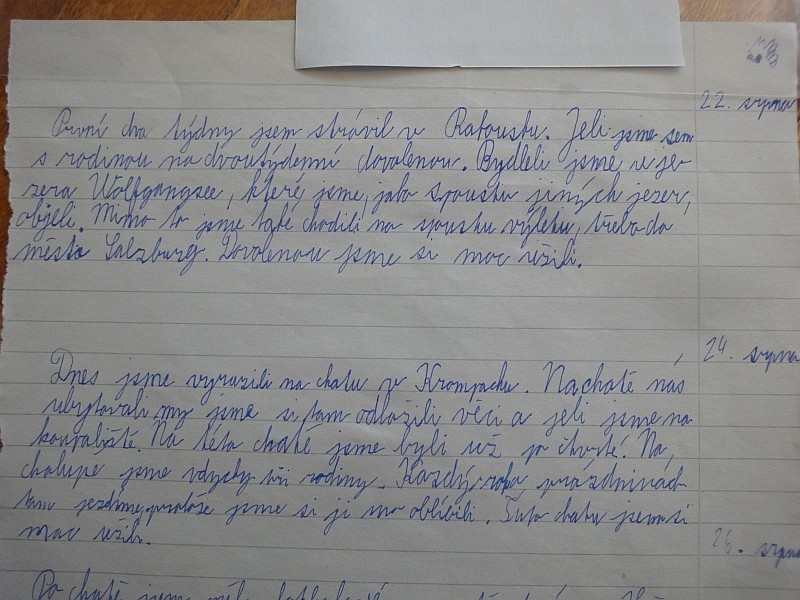 22. srpna
První dva týdny jsem strávil v Rakousku. Jeli jsme sem
s rodinou na dvoutýdenní dovolenou. Bydleli jsme u je-
zera Wolfgangsee, které jsme, jako spoustu jiných jezer,
objeli. Mimo to jsme také chodili na spoustu výletů, třeba do
města Salzburg. Dovolenou jsme si moc užili.
24. srpna
Dnes jsme vyrazili na chatu v Krompachu. Na chatě nás
ubytovali, my jsme si tam odložili věci a jeli jsme na
koupaliště. Na této chatě jsme byli už po čtvrté. Na
chalupě jsme vždycky tři rodiny. Každý rok o prázdninách
tam jezdíme, protože jsme si ji moc oblíbili. Tuto chatu jsem si
moc užili.
26. srpna
Po chatě jsem